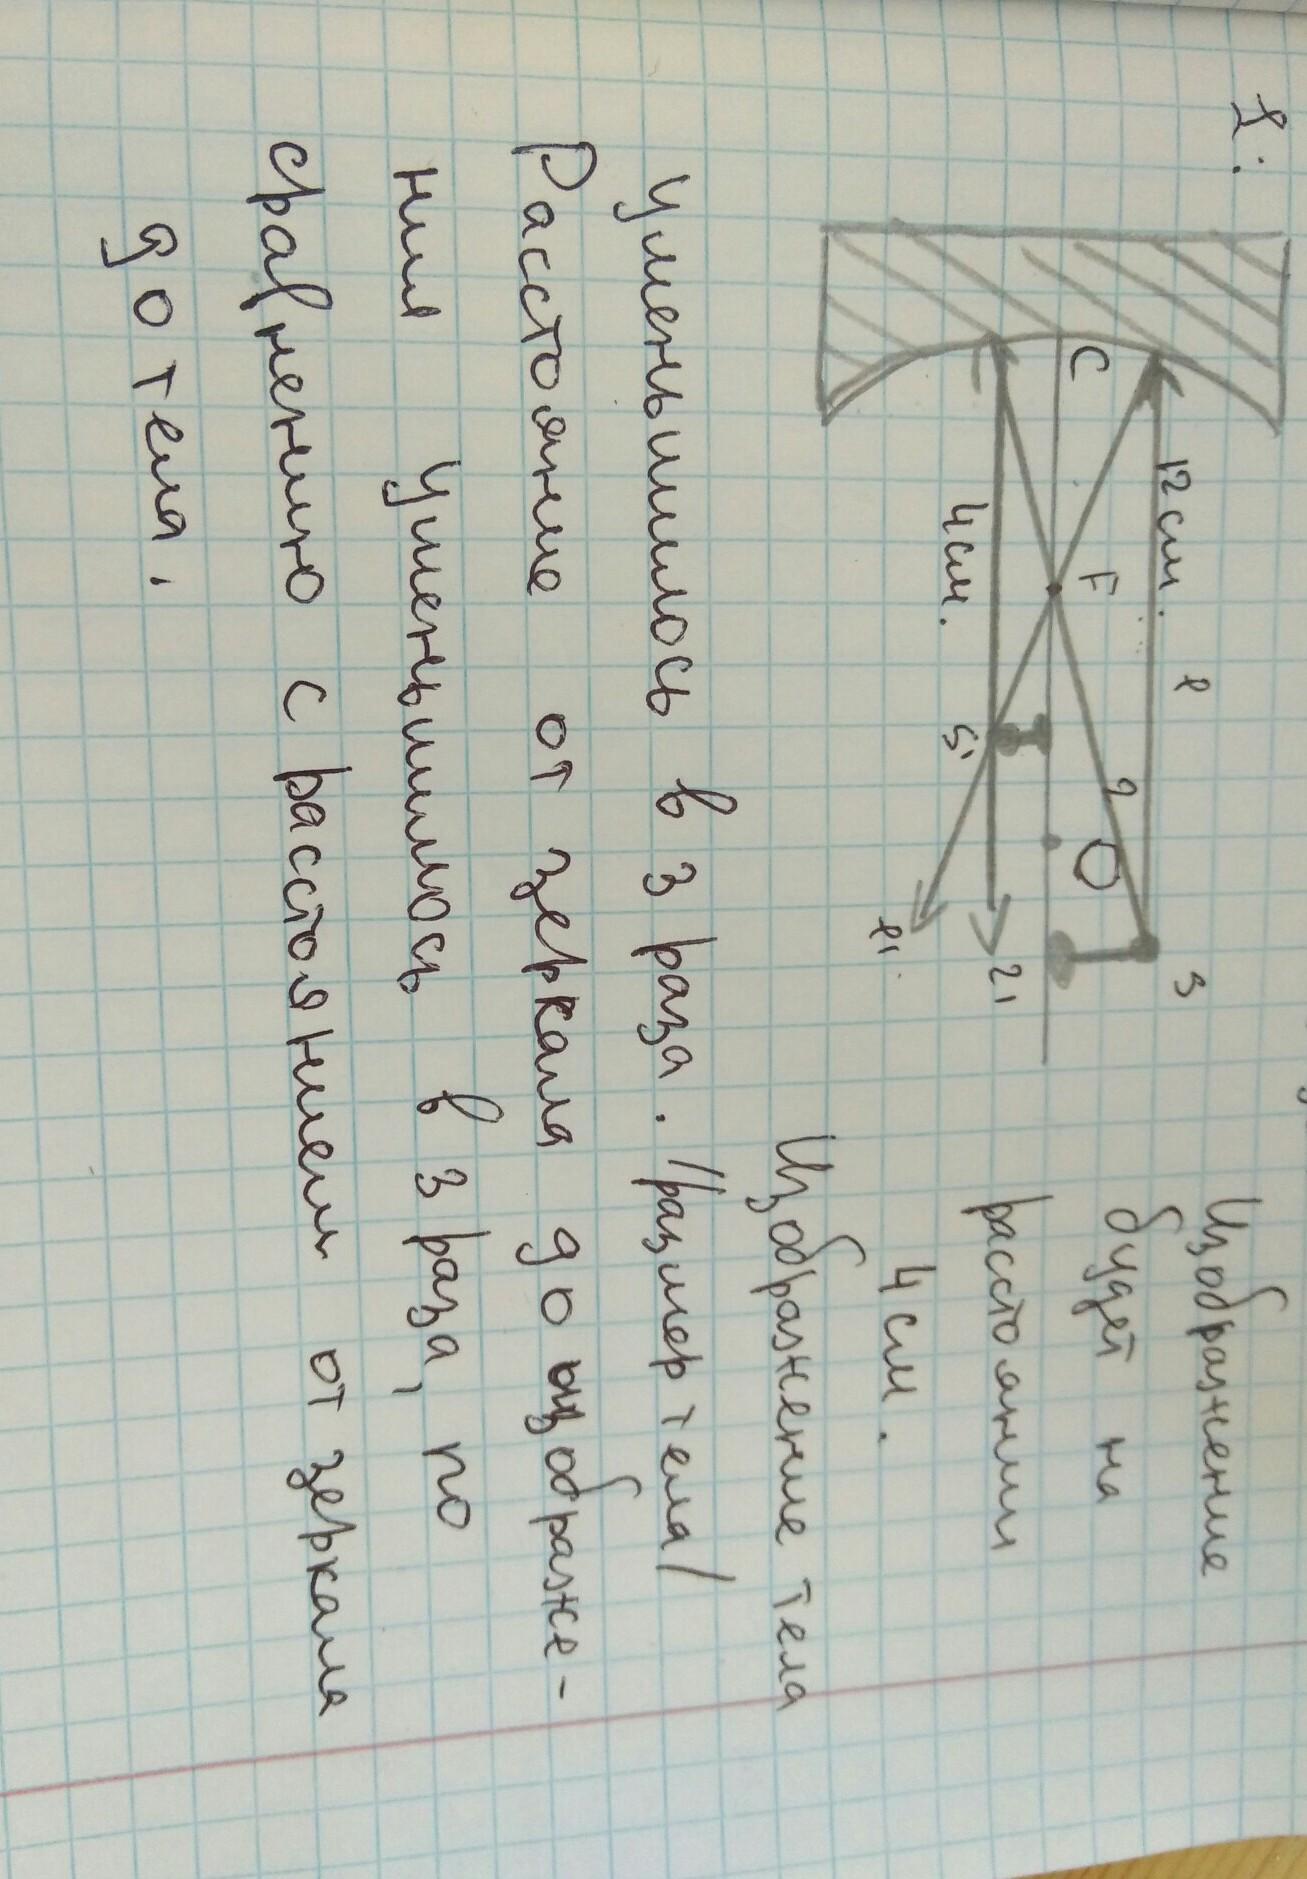 1:
C
12 см.
F
1
2
O
S
4 см.
S'
2'
1'.
Изображение
будет на
расстоянии
4 см.
Изображение тела
уменьшилось в 3 раза. //размер тела/
Расстояние от зеркала до изображе-
ния уменьшилось в 3 раза, по
сравнению с расстоянием от зеркала
до тела.